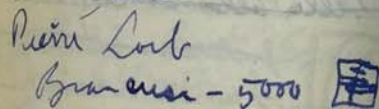 Pierre Loeb
Brancusi - 5000